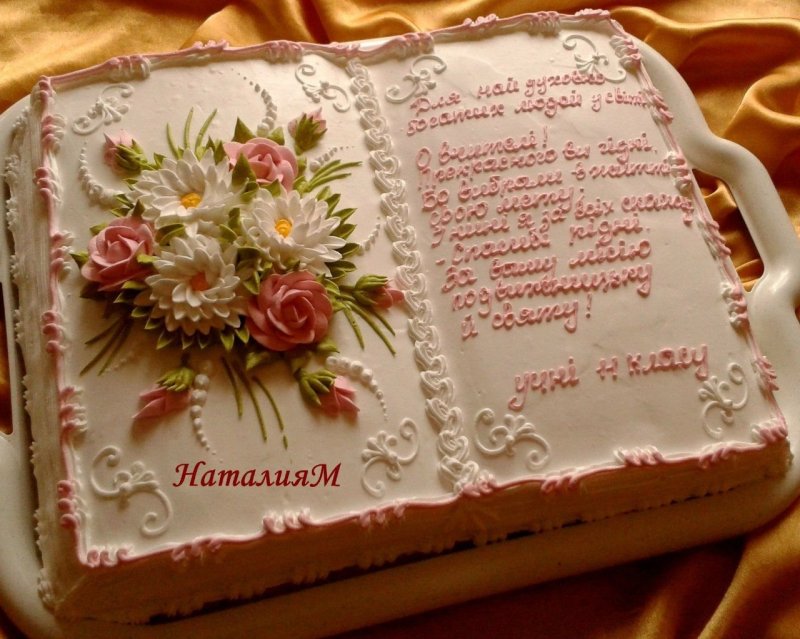 Для най духовно
багатих людей у світі
О вчителі!
Прекрасного ви гідні.
Бо вибрали в житті
свою мету.
Уклін я за всіх складу
за вашу місію
подвижницьку
й святу!
учні 11 класу
НаталияМ